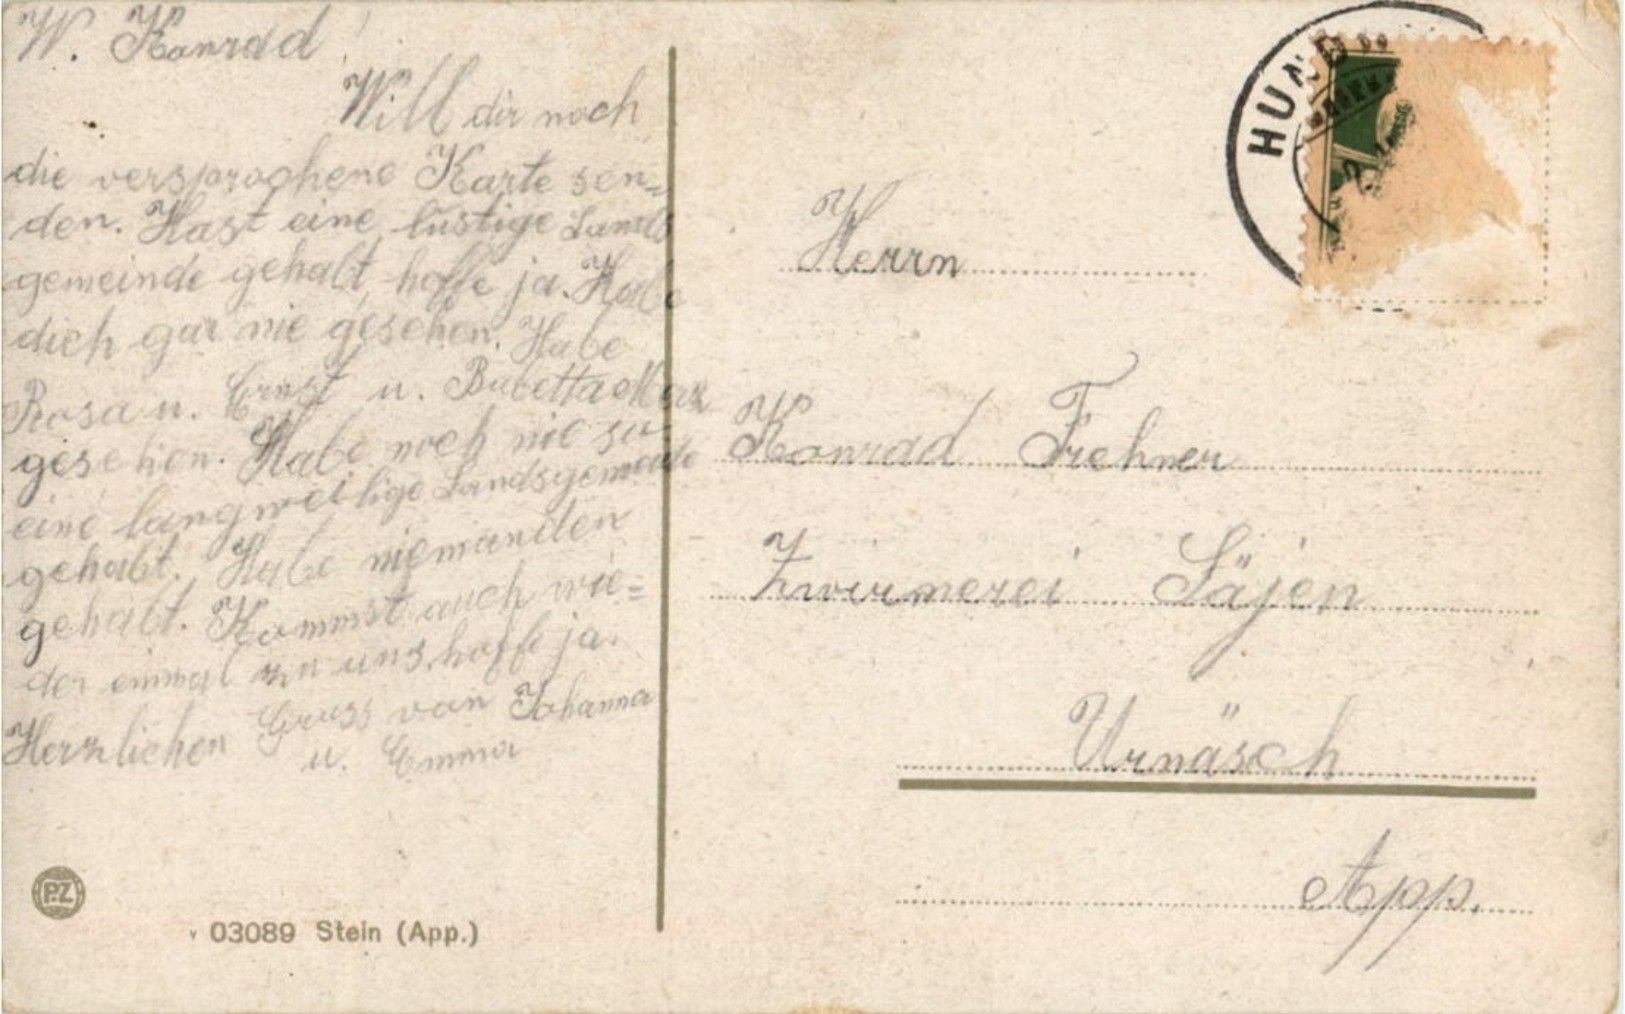 W. Konrad!
Will dir noch
die versprochene Karte sen=
den. Hast eine lustige Lands
gemeinde gehabt hoffe ja. Habe
dich gar nie gesehen. Habe
Rosa u. Ernst u. Babetta
gesehen. Habe noch nie so
eine langweilige Landsgemeinde
gehabt. Habe niemanden
gehabt. Kommst auch wie=
der einmal zu uns, hoffe ja.
Herzlichen Gruss von Johanna
u. Emma
P.Z
03089 Stein (App.)
HUND
Herrn
Konrad Frehner
Zwirnerei Säjen
Urnäsch
App.